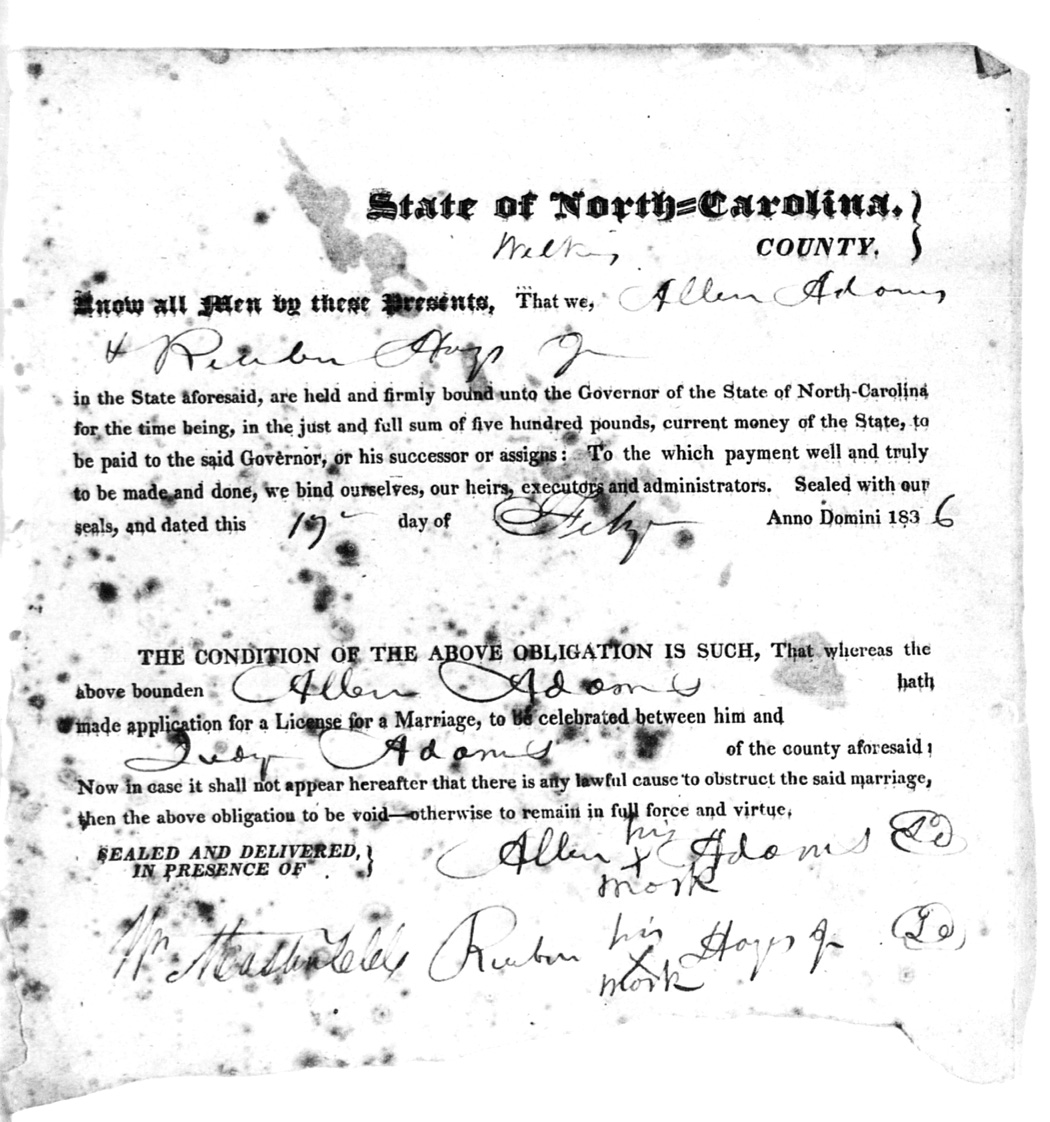 State of North=Carolina. }
Wilkes COUNTY. }
Know all Men by these Presents, That we, Allen Adams
& Reuben Hays Jr
in the State aforesaid, are held and firmly bound unto the Governor of the State of North-Carolina
for the time being, in the just and full sum of five hundred pounds, current money of the State, to
be paid to the said Governor, or his successor or assigns: To the which payment well and truly
to be made and done, we bind ourselves, our heirs, executors and administrators. Sealed with our
seals, and dated this 19 day of Feby Anno Domini 1836
THE CONDITION OF THE ABOVE OBLIGATION IS SUCH, That whereas the
above bounden Allen Adams hath
made application for a License for a Marriage, to be celebrated between him and
Judy Adams of the county aforesaid;
Now in case it shall not appear hereafter that there is any lawful cause to obstruct the said marriage,
then the above obligation to be void—otherwise to remain in full force and virtue.
SEALED AND DELIVERED, }
IN PRESENCE OF }
his
Allen X Adams
mark
Wm Masten
his
Reuben X Hays Jr
mark